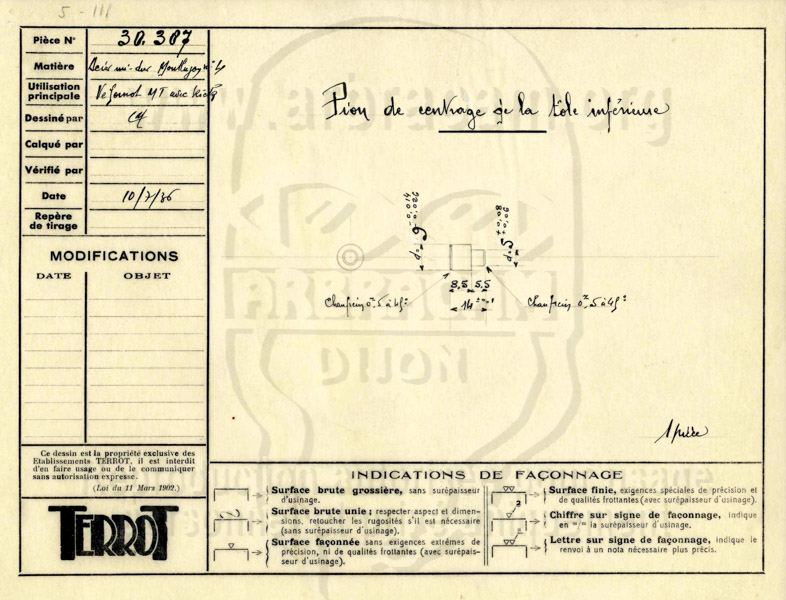 5 - III
Pièce N° 30.307
Matière Acier mi-dur
Utilisation
principale MT avec
Dessiné par
Calqué par
Vérifié par
Date 10/7/36
Repère
de tirage
MODIFICATIONS
DATE OBJET
Ce dessin est la propriété exclusive des
Etablissements TERROT, il est interdit
d'en faire usage ou de le communiquer
sans autorisation expresse.
(Loi du 11 Mars 1902.)
TERROT
Pion de centrage de la tôle inférieure
8,5 5,5
14
Chanfrein 0,5 à 45°
Chanfrein 0,5 à 45°
1 pièce
www.arbracam.org
ARBRACAM
DIJON
INDICATIONS DE FAÇONNAGE
Surface brute grossière, sans surépaisseur
d'usinage.
Surface brute unie ; respecter aspect et dimen-
sions, retoucher les rugosités s'il est nécessaire
(sans surépaisseur d'usinage).
Surface façonnée sans exigences extrêmes de
précision, ni de qualités frottantes (avec surépais-
seur d'usinage).
Surface finie, exigences spéciales de précision et
de qualités frottantes (avec surépaisseur d'usinage).
Chiffre sur signe de façonnage, indique
en m/m la surépaisseur d'usinage.
Lettre sur signe de façonnage, indique le
renvoi à un nota nécessaire plus précis.